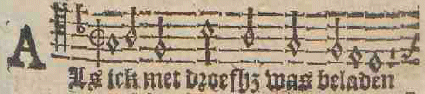 Als ick met droefhz was beladen